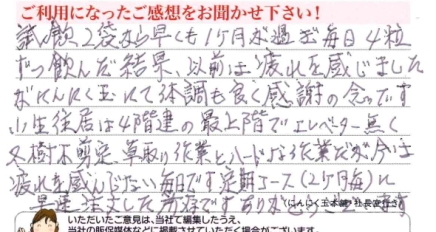 ご利用になったご感想をお聞かせ下さい！
試飲、2袋から早くも1ヶ月が過ぎ毎日4粒
ずつ飲んだ結果、以前は疲れを感じました
がにんにく玉にて体調も良く感謝の念のです
小生住居は4階建の最上階でエレベーター無く
冬樹木剪定、草取り作業とハードな作業だが今は
疲れを感んじない毎日です定期コース(2ヶ月毎)に
早速、注文した所存ですありがとうございます
(にんにく玉本舗 社長夜行き)
いただいたご意見は、当社で編集したうえ、
当社の販促媒体などに掲載させていただく場合がございます。